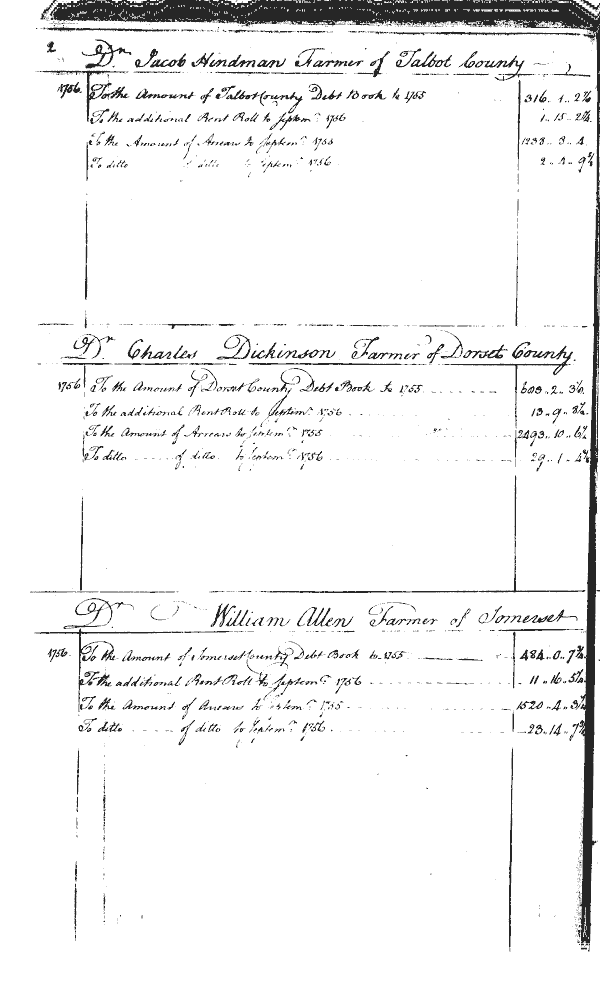 2
Dr. Jacob Hindman Farmer of Talbot County
1756. To the Amount of Talbot County Debt Book to 1755 316.. 1.. 2¾
To the additional Rent Roll to Septemr. 1756 1.. 15.. 2¾
To the Amount of Arrears to Septemr. 1755 1238.. 3.. 4
To ditto of ditto to Septemr. 1756 2.. 4.. 9¾
Dr. Charles Dickinson Farmer of Dorset County.
1756 To the Amount of Dorset County Debt Book to 1755 603.. 2..
To the additional Rent Roll to Septemr. 1756 13.. 9..
To the Amount of Arrears to Septemr. 1755 2493.. 10..
To ditto of ditto to Septemr. 1756 29.. 1..
Dr. William Allen Farmer of Somerset
1756. To the Amount of Somerset County Debt Book to 1755 484.. 0..
To the additional Rent Roll to Septemr. 1756 11.. 16..
To the Amount of Arrears to Septemr. 1755 1520.. 4..
To ditto of ditto to Septemr. 1756 23.. 14..